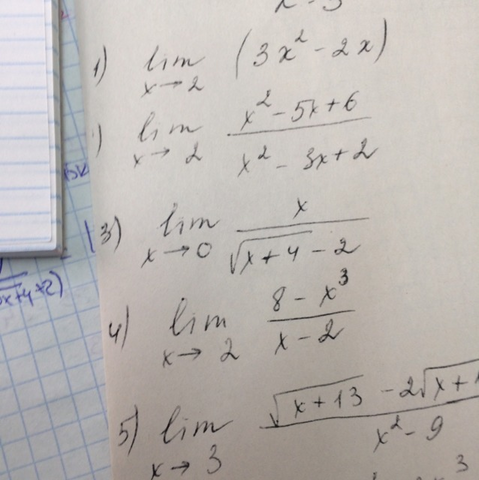 1) lim x→2 (3x² - 2x)
) lim x→2 (x² - 5x + 6)/(x² - 3x + 2)
3) lim x→0 x/(√(x+4) - 2)
4) lim x→2 (8 - x³)/(x - 2)
5) lim x→3 (√(x+13) - 2√(x+1))/(x² - 9)